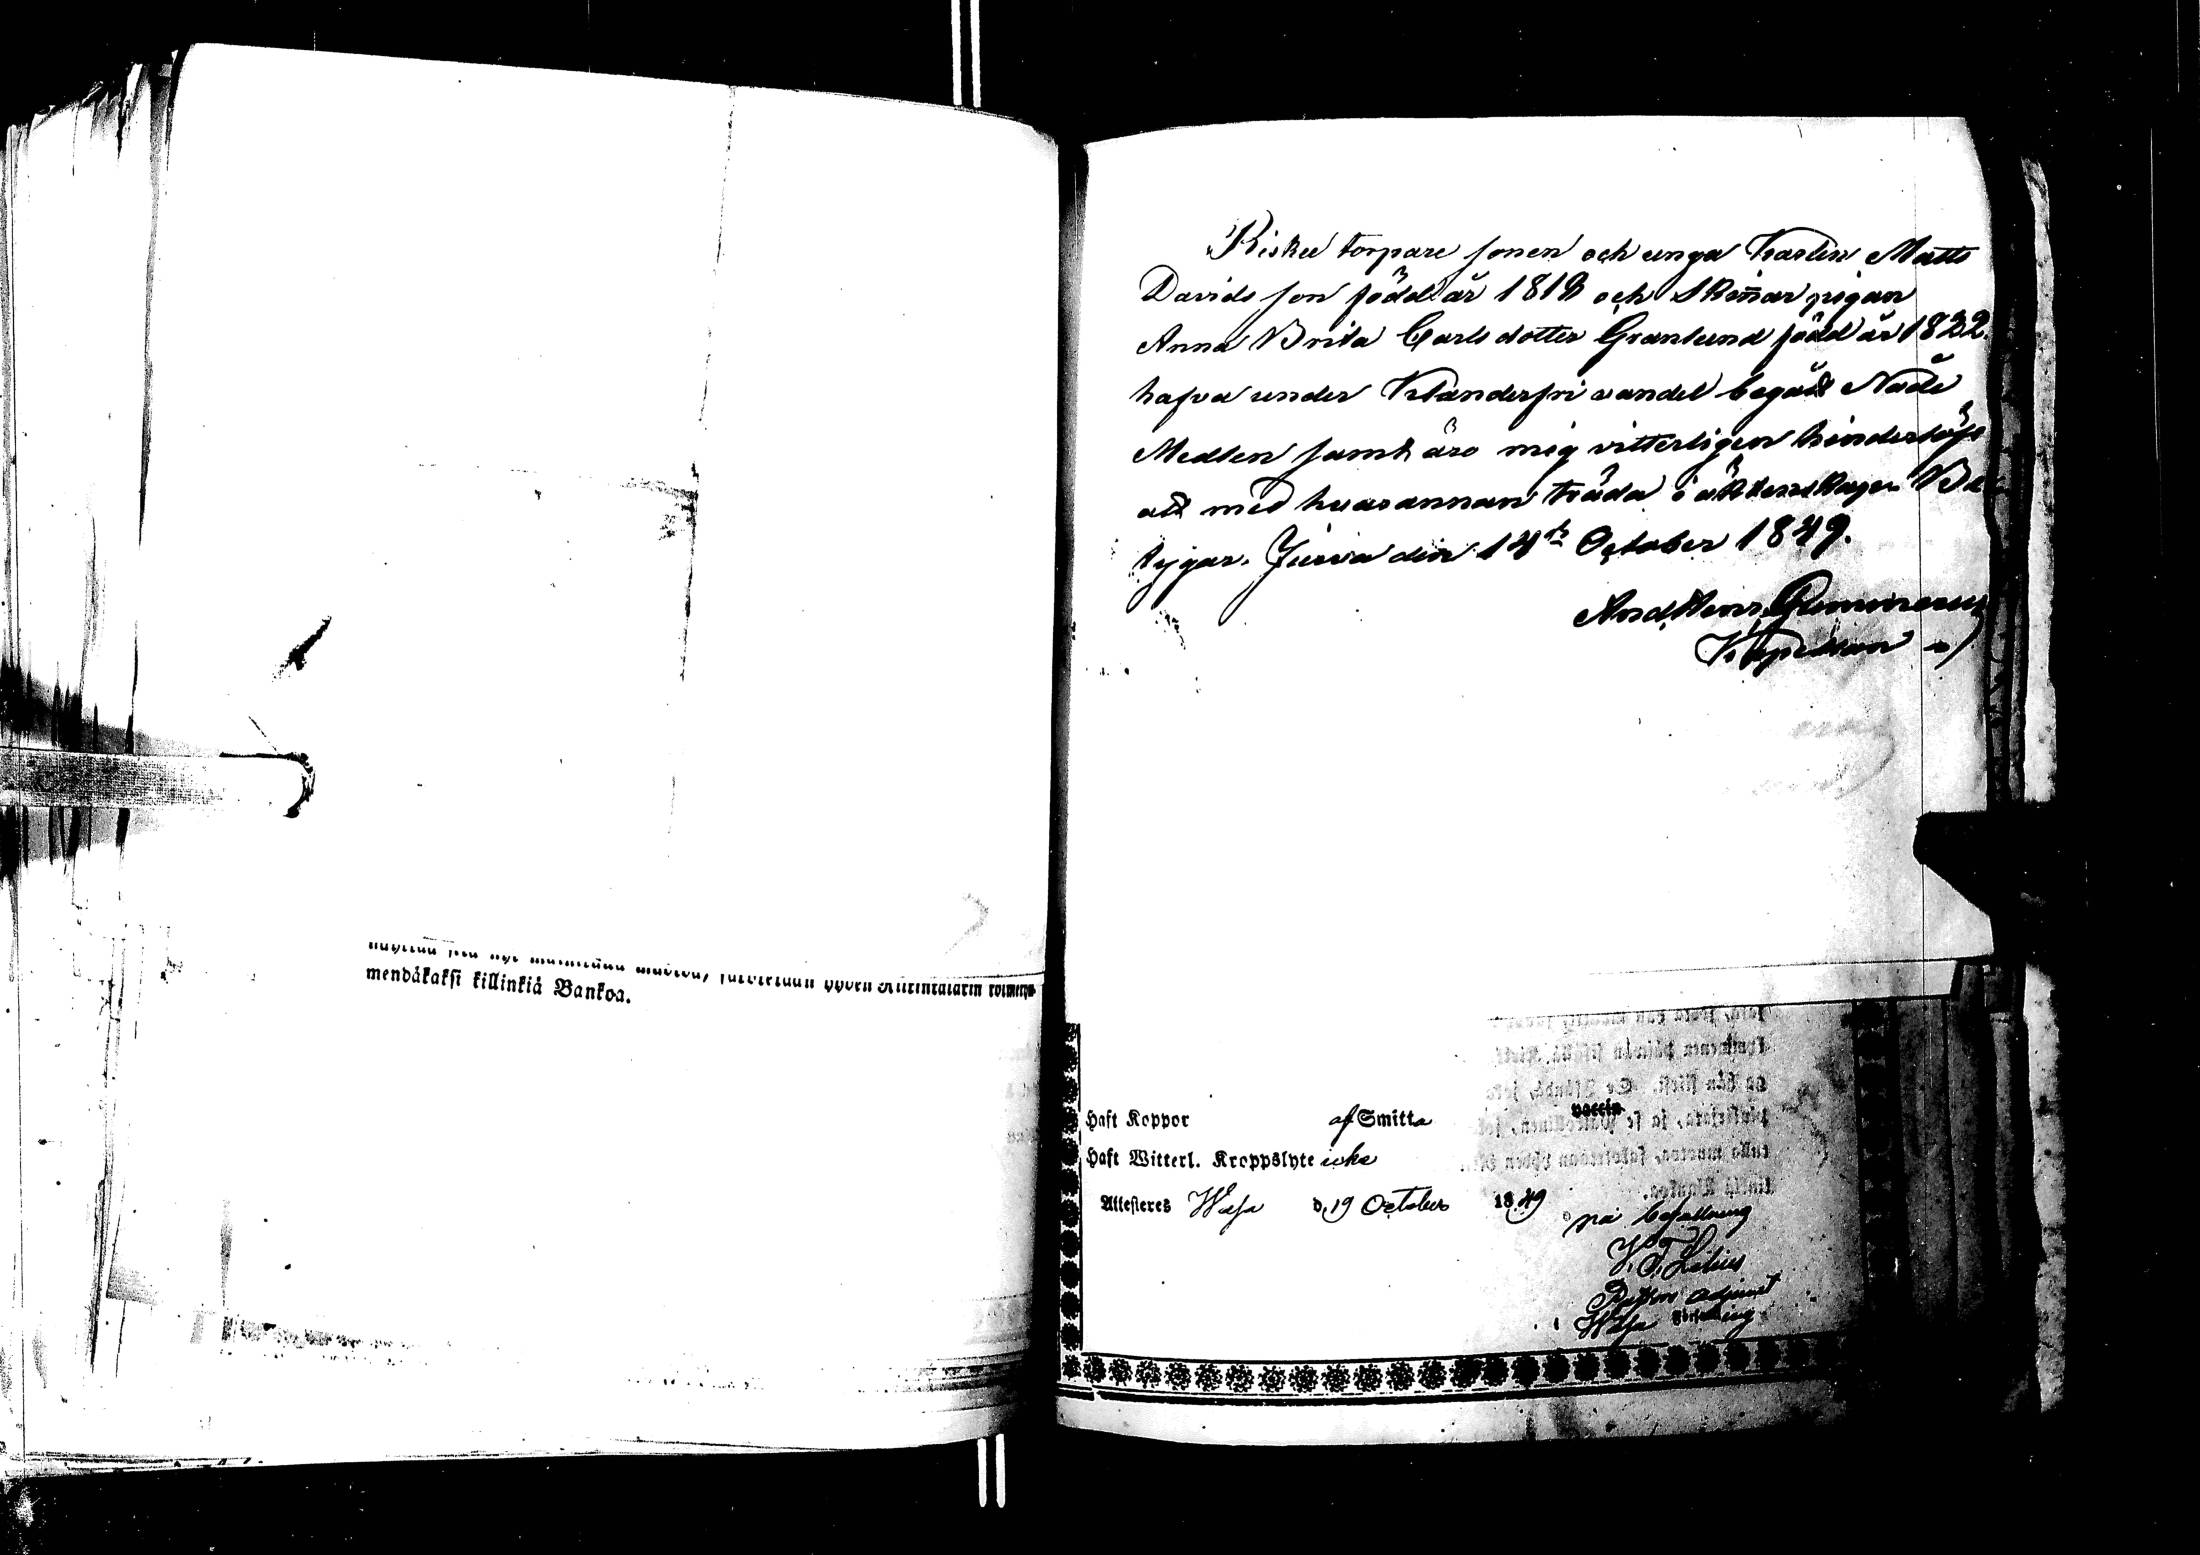 mendäkaksi killinkiä Bankoa.
Riskee torpare sonen och unga Karlen Matts
Davids son född år 1818 och Skinnar pigan
Anna Brita Carls dotter Granlund född år 1822.
hafva under Klanderfri vandel begådt Nåde
Medlen samt äro mig vitterligen hinderlöse
att med hvarannan träda i äktenskapen Be
tygar. Jurva den 14de October 1849.
And. Henr. Gummerus
Kapellan
Haft Koppor af Smitta vaccin
Haft Witterl. Kroppslyte icke
Attesteres Wasa d. 19 October 1849
på befallning
Adjunct
Wasa Församling